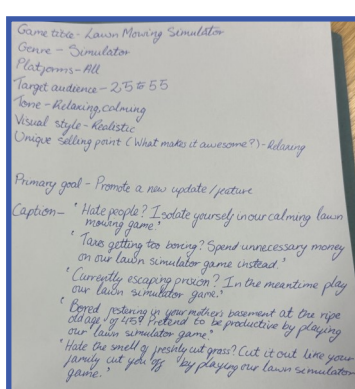 Game title - Lawn Mowing Simulator
Genre - Simulator
Platforms - All
Target audience - 25 to 55
Tone - Relaxing, calming
Visual style - Realistic
Unique selling point (What makes it awesome?) - Relaxing
Primary goal - Promote a new update/feature
Caption - "Hate people? Isolate yourself in our calming lawn
mowing game."
"Taxes getting too boring? Spend unnecessary money
on our lawn simulator game instead."
"Currently escaping prison? In the meantime play
our lawn simulator game."
"Bored festering in your mothers basement at the ripe
old age of 45? Pretend to be productive by playing
our lawn simulator game."
"Hate the smell of freshly cut grass? Cut it out like your
family cut you off by playing our lawn simulator
game."